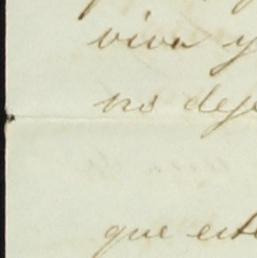 viva y
no deje
que este